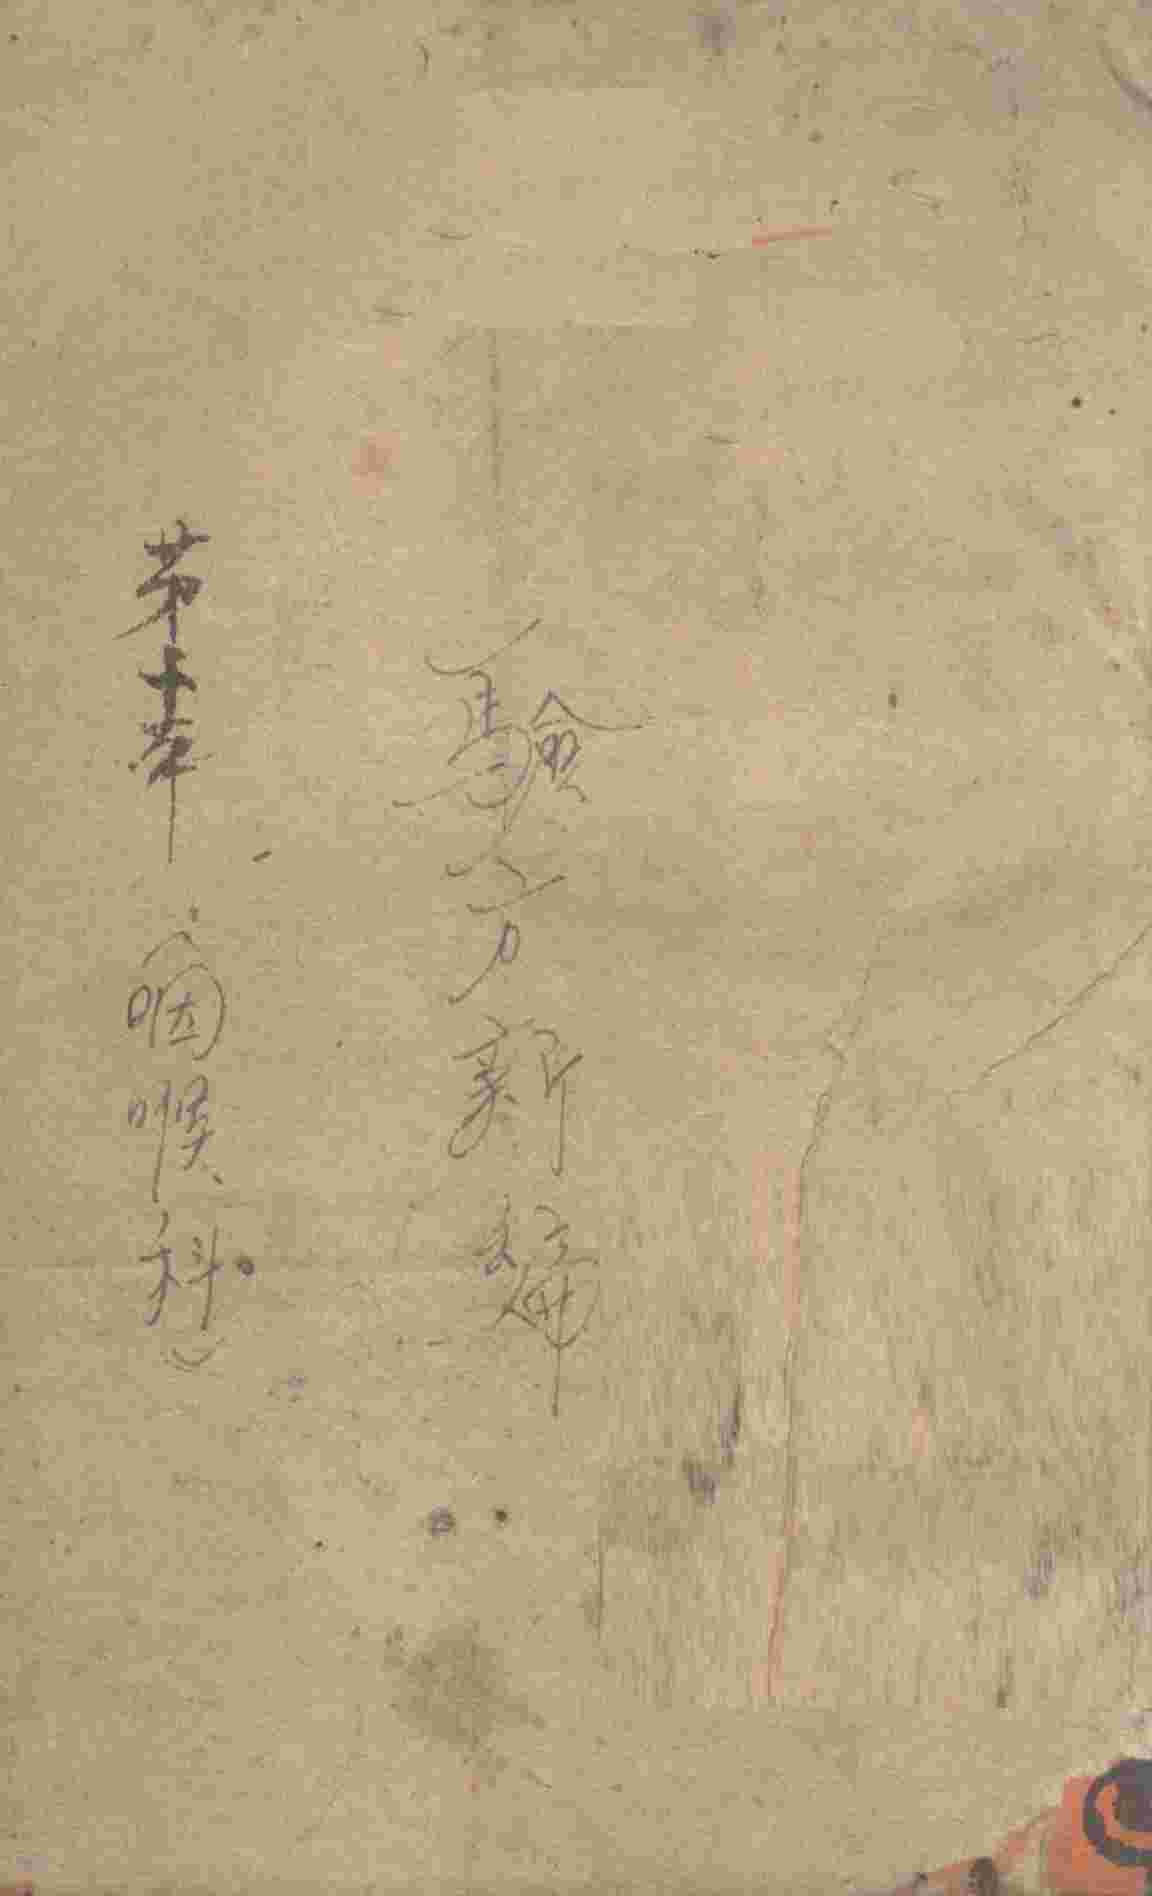 驗方新編
第十章(咽喉科。)